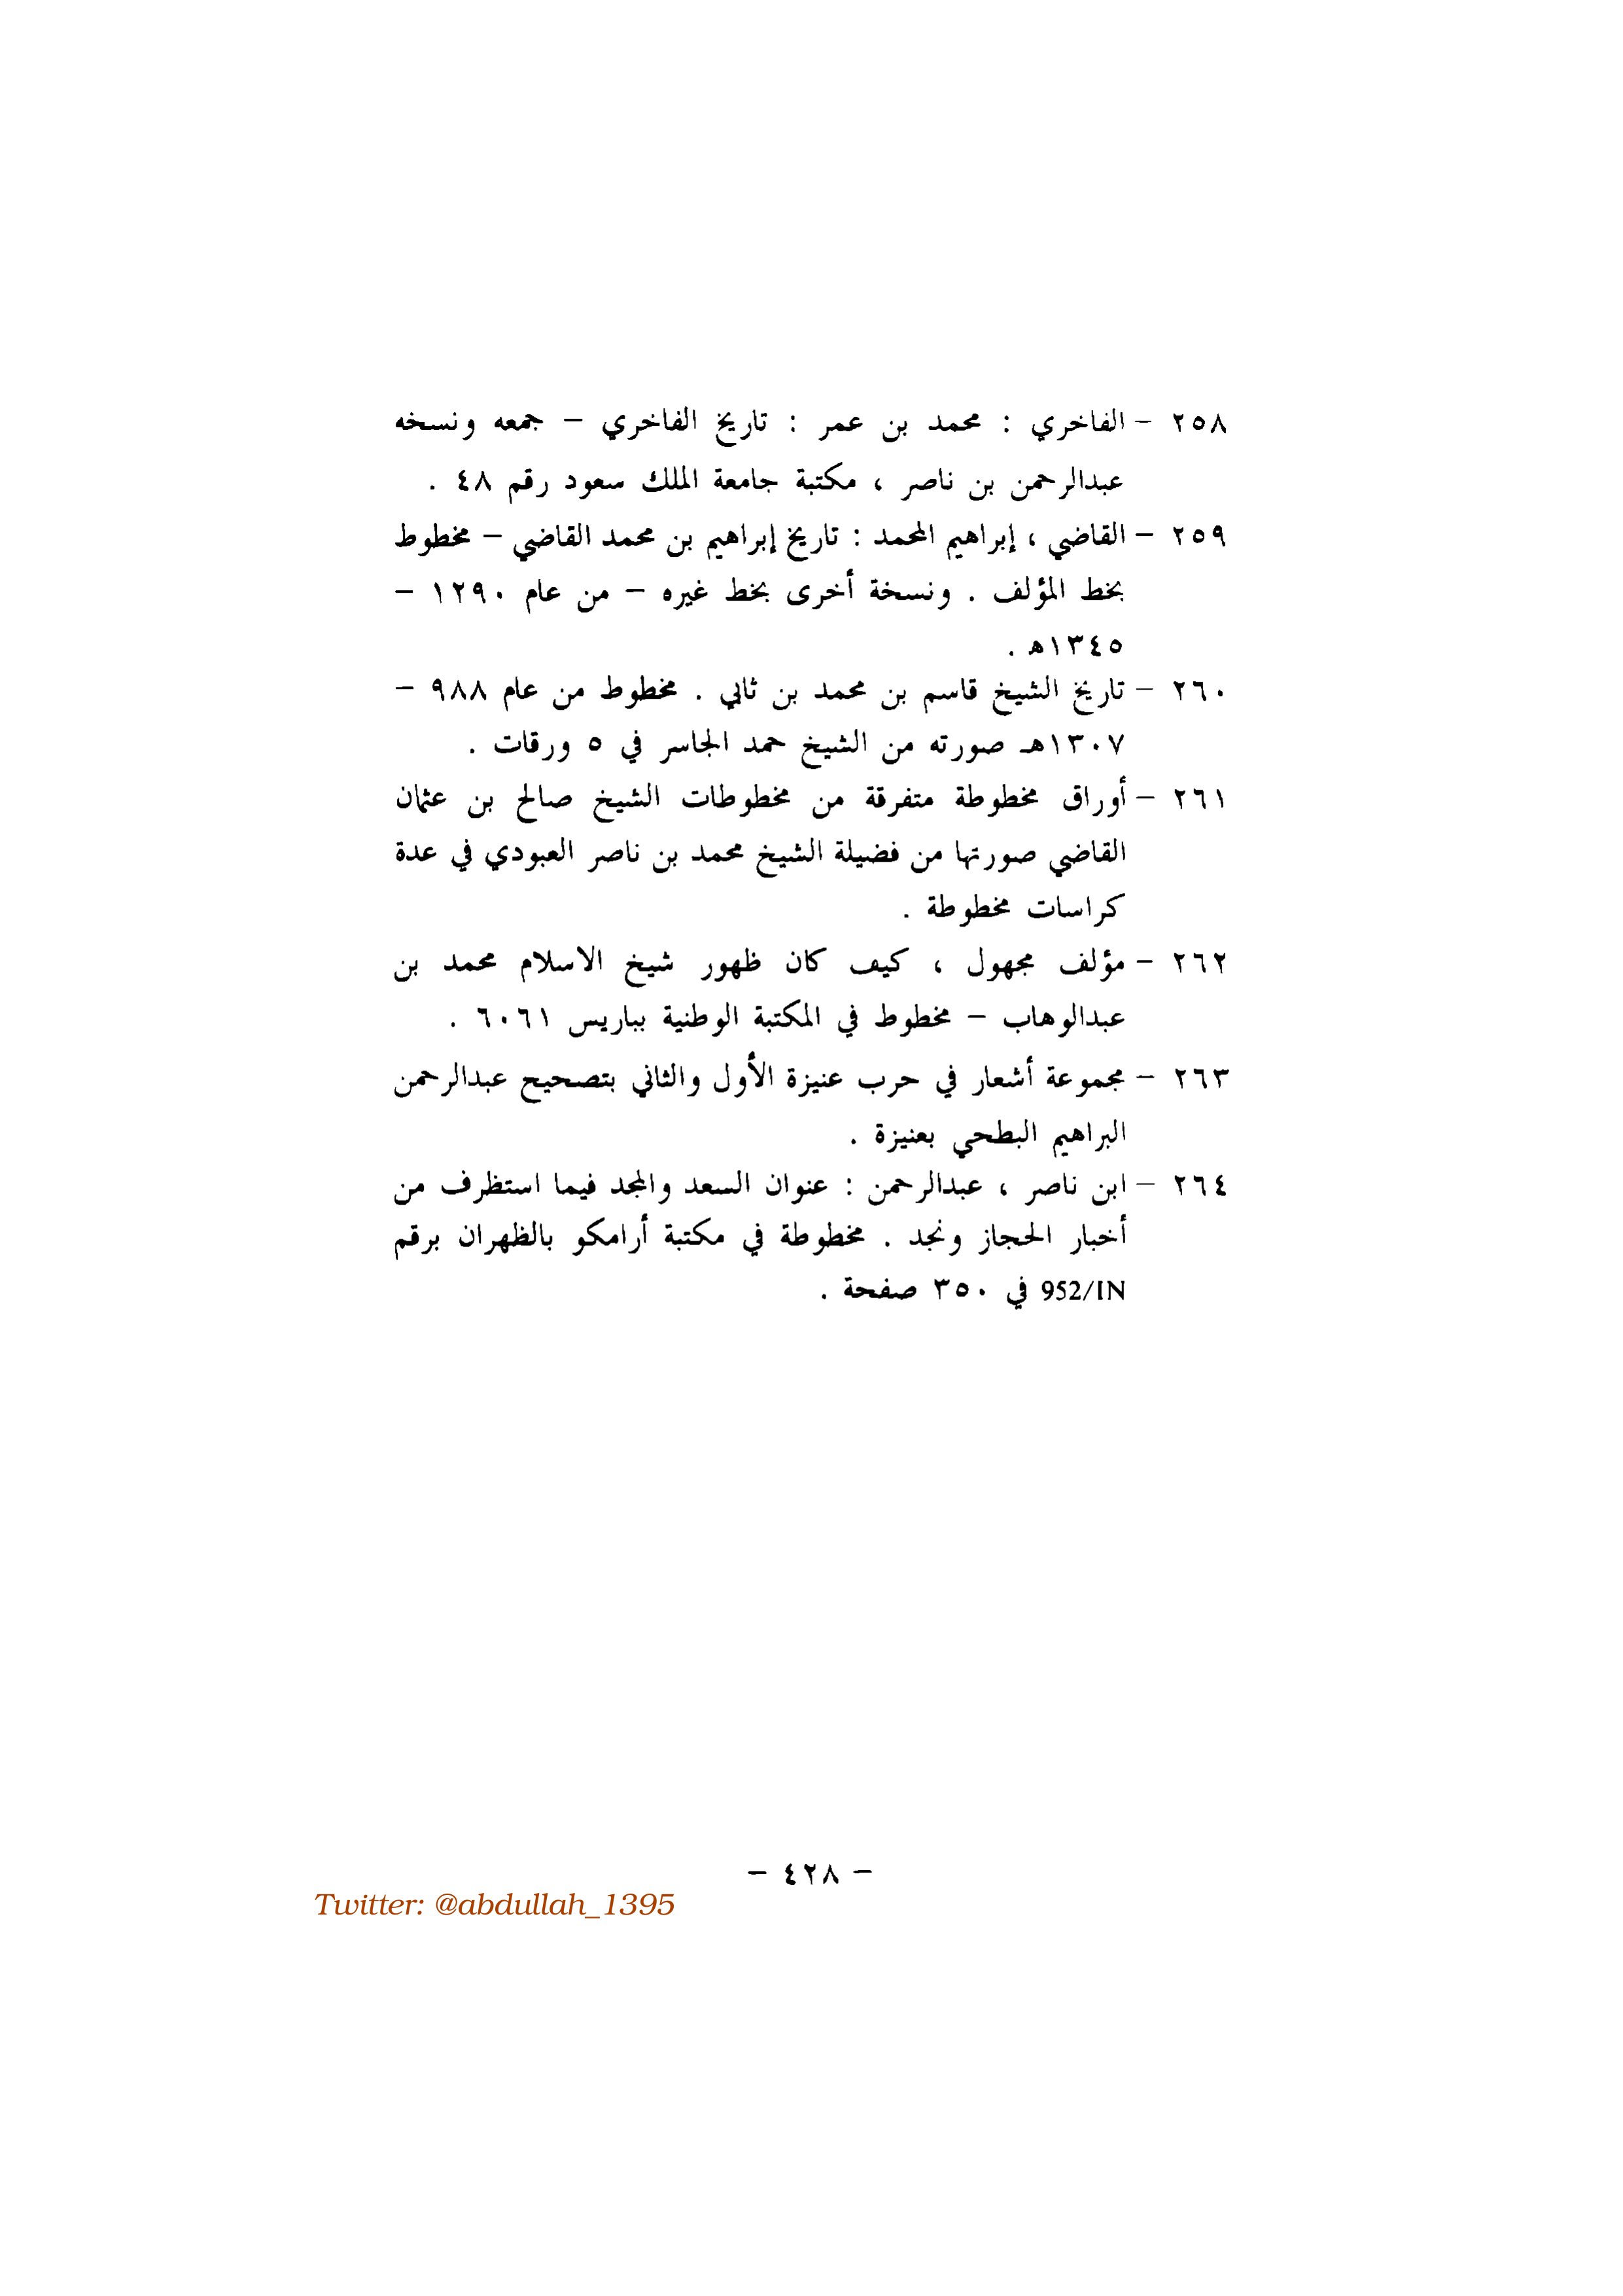 ٢٥٨ – الفاخري : محمد بن عمر : تاريخ الفاخري – جمعه ونسخه
عبدالرحمن بن ناصر ، مكتبة جامعة الملك سعود رقم ٤٨ .
٢٥٩ – القاضي ، إبراهيم المحمد : تاريخ إبراهيم بن محمد القاضي – مخطوط
بخط المؤلف . ونسخة أخرى بخط غيره – من عام ١٢٩٠ –
١٣٤٥ه .
٢٦٠ – تاريخ الشيخ قاسم بن محمد بن ثاني . مخطوط من عام ٩٨٨ –
١٣٠٧هـ صورته من الشيخ حمد الجاسر في ٥ ورقات .
٢٦١ – أوراق مخطوطة متفرقة من مخطوطات الشيخ صالح بن عثمان
القاضي صورتها من فضيلة الشيخ محمد بن ناصر العبودي في عدة
كراسات مخطوطة .
٢٦٢ – مؤلف مجهول ، كيف كان ظهور شيخ الاسلام محمد بن
عبدالوهاب – مخطوط في المكتبة الوطنية بباريس ٦٠٦١ .
٢٦٣ – مجموعة أشعار في حرب عنيزة الأول والثاني بتصحيح عبدالرحمن
البراهيم البطحي بعنيزة .
٢٦٤ – ابن ناصر ، عبدالرحمن : عنوان السعد والمجد فيما استظرف من
أخبار الحجاز ونجد . مخطوطة في مكتبة أرامكو بالظهران برقم
952/IN في ٣٥٠ صفحة .
– ٤٢٨ –
Twitter: @abdullah_1395